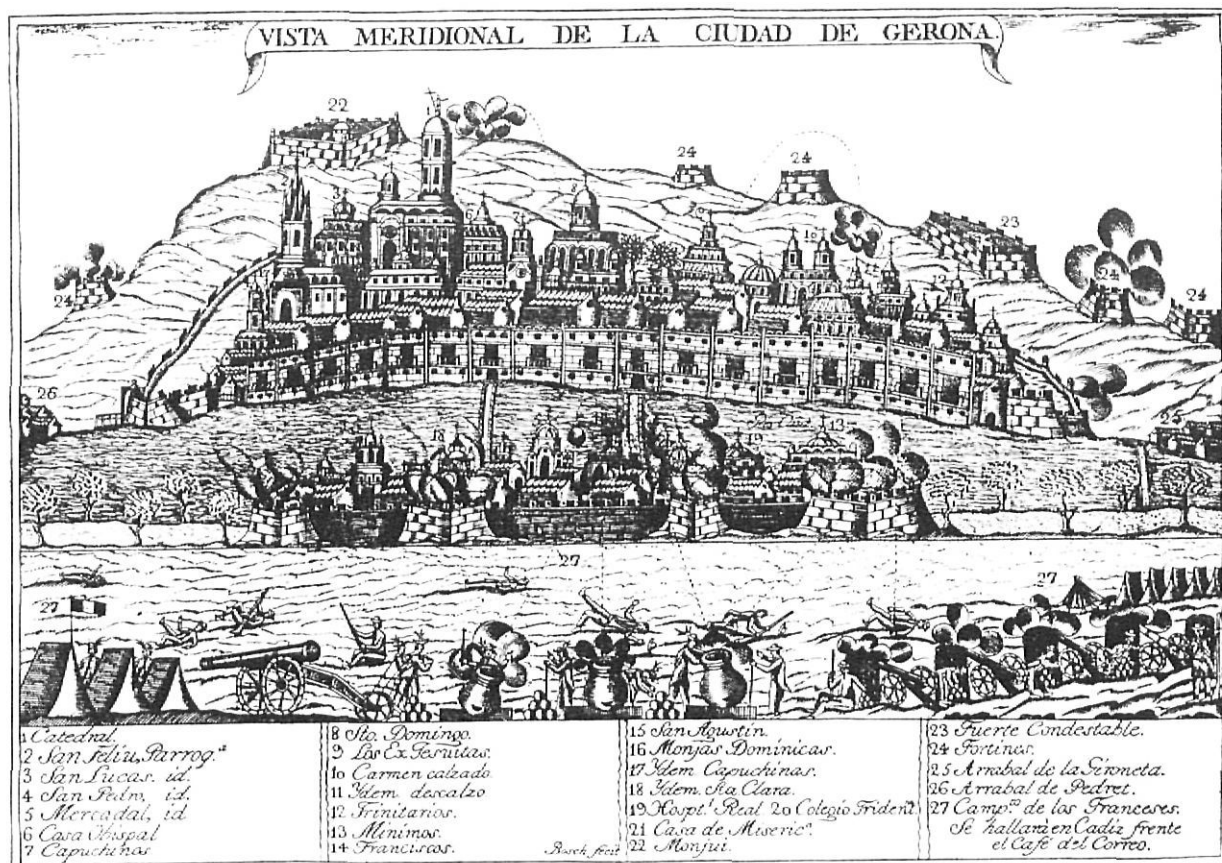 VISTA MERIDIONAL DE LA CIUDAD DE GERONA.
22
24
24
23
24
24
24
26
3
6
9
10
18
19
13
27
27
27
1 Catedral.
2 San Feliu, Parrog.ª
3 San Lucas. id.
4 San Pedro, id.
5 Mercadal, id
6 Casa Obispal
7 Capuchinos
8 Sto. Domingo.
9 Los Ex Jesuitas.
10 Carmen calzado
11 Ydem descalzo
12 Trinitarios.
13 Minimos.
14 Franciscos.
Bosch fecit
15 San Agustin.
16 Monjas Dominicas.
17 Ydem Capuchinas.
18 Ydem. Sta Clara.
19 Hospt.l Real 20 Colegio Trident
21 Casa de Miseric.ª
22 Monjui.
23 Fuerte Condestable.
24 Fortines.
25 Arrabal de la Gironeta.
26 Arrabal de Pedret.
27 Camp.to de los Franceses.
Se hallará en Cadiz frente
el Café del Correo.